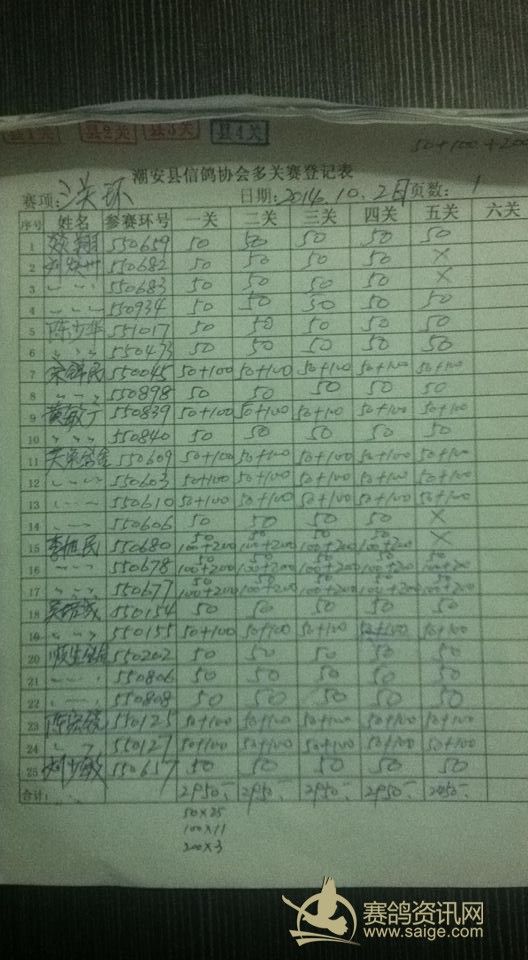 县1关 县2关 县3关 县4关
50+100+200
潮安县信鸽协会多关赛登记表
赛项: 关环 日期: 2014.10.2日 页数: 1
序号 姓名 参赛环号 一关 二关 三关 四关 五关 六关
1 550659 50 50 50 50 50
2 550682 50 50 50 50 ×
3 〃 〃 550683 50 50 50 50 ×
〃 〃 550934 50 50 50 50 50
5 陈少华 551017 50 50 50 50 50
6 〃 〃 550473 50 50 50 50 50
7 550045 50+100 50+100 50+100 50+100 50+100
8 〃 〃 550898 50 50 50 50 50
9 黄敏宁 550839 50+100 50+100 50+100 50+100 50+100
10 〃 〃 〃 550840 50 50 50 50 50
11 550609 50+100 50+100 50+100 50+100 50+100
12 〃 〃 550603 50+100 50+100 50+100 50+100 50+100
13 〃 〃 550610 50+100 50+100 50+100 50+100 50+100
14 〃 〃 550606 50 50 50 50 ×
15 李旭民 550680 50 100+200 50 100+200 50 100+200 50 100+200 ×
16 〃 〃 550678 50 100+200 50 100+200 50 100+200 50 100+200 50 100+200
17 〃 〃 550677 50 100+200 50 100+200 50 100+200 50 100+200 50 100+200
18 550154 50 50 50 50 50
19 〃 〃 550155 50+100 50+100 50+100 50+100 50+100
20 550202 50 50 50 50 50
21 〃 〃 550806 50 50 50 50 50
22 〃 〃 550808 50 50 50 50 50
23 550125 50+100 50+100 50+100 50+100 50+100
24 〃 〃 550127 50+100 50+100 50+100 50+100 50+100
25 刘少敏 550657 50 50 50 50 50
合计: 2950- 2950- 2950- 2950- 2450-
50×25
100×11
200×3
赛鸽资讯网
www.saige.com